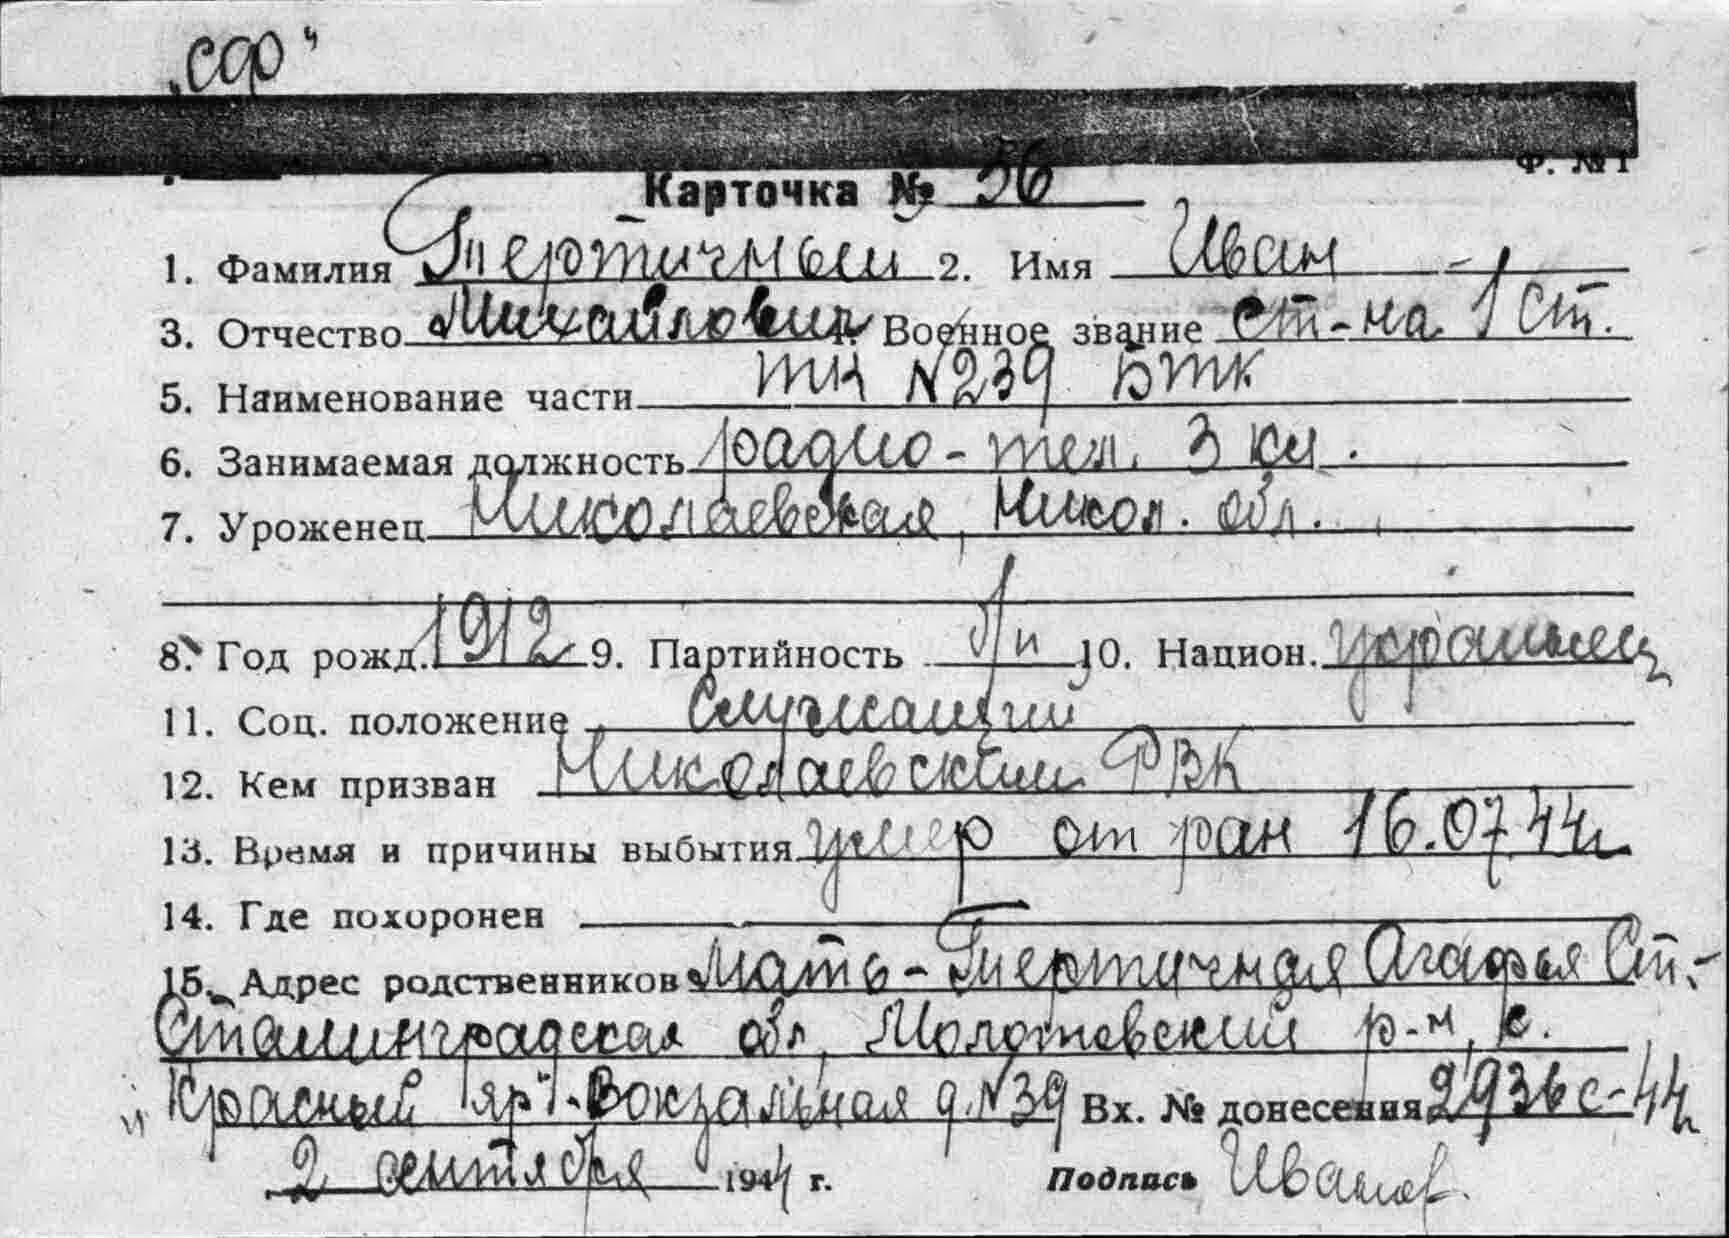 „СФ“
Ф. №1
Карточка № 56
1. Фамилия Тертичный 2. Имя Иван
3. Отчество Михайлович 4. Военное звание ст-на 1 ст.
5. Наименование части ТК №239 БТК
6. Занимаемая должность радио-тел. 3 кл.
7. Уроженец Николаевская, Никол. обл.
8. Год рожд. 1912 9. Партийность б/п 10. Национ. украинец
11. Соц. положение служащий
12. Кем призван Николаевский РВК
13. Время и причины выбытия умер от ран 16.07.44г
14. Где похоронен
15. Адрес родственников мать - Тертичная Агафья Ст.-
Сталинградская обл, Молотовский р-н, с.
"Красный яр"-Вокзальная д.№39 Вх. № донесения 2936с-44г
2 сентября 1944 г. Подпись Иванов.